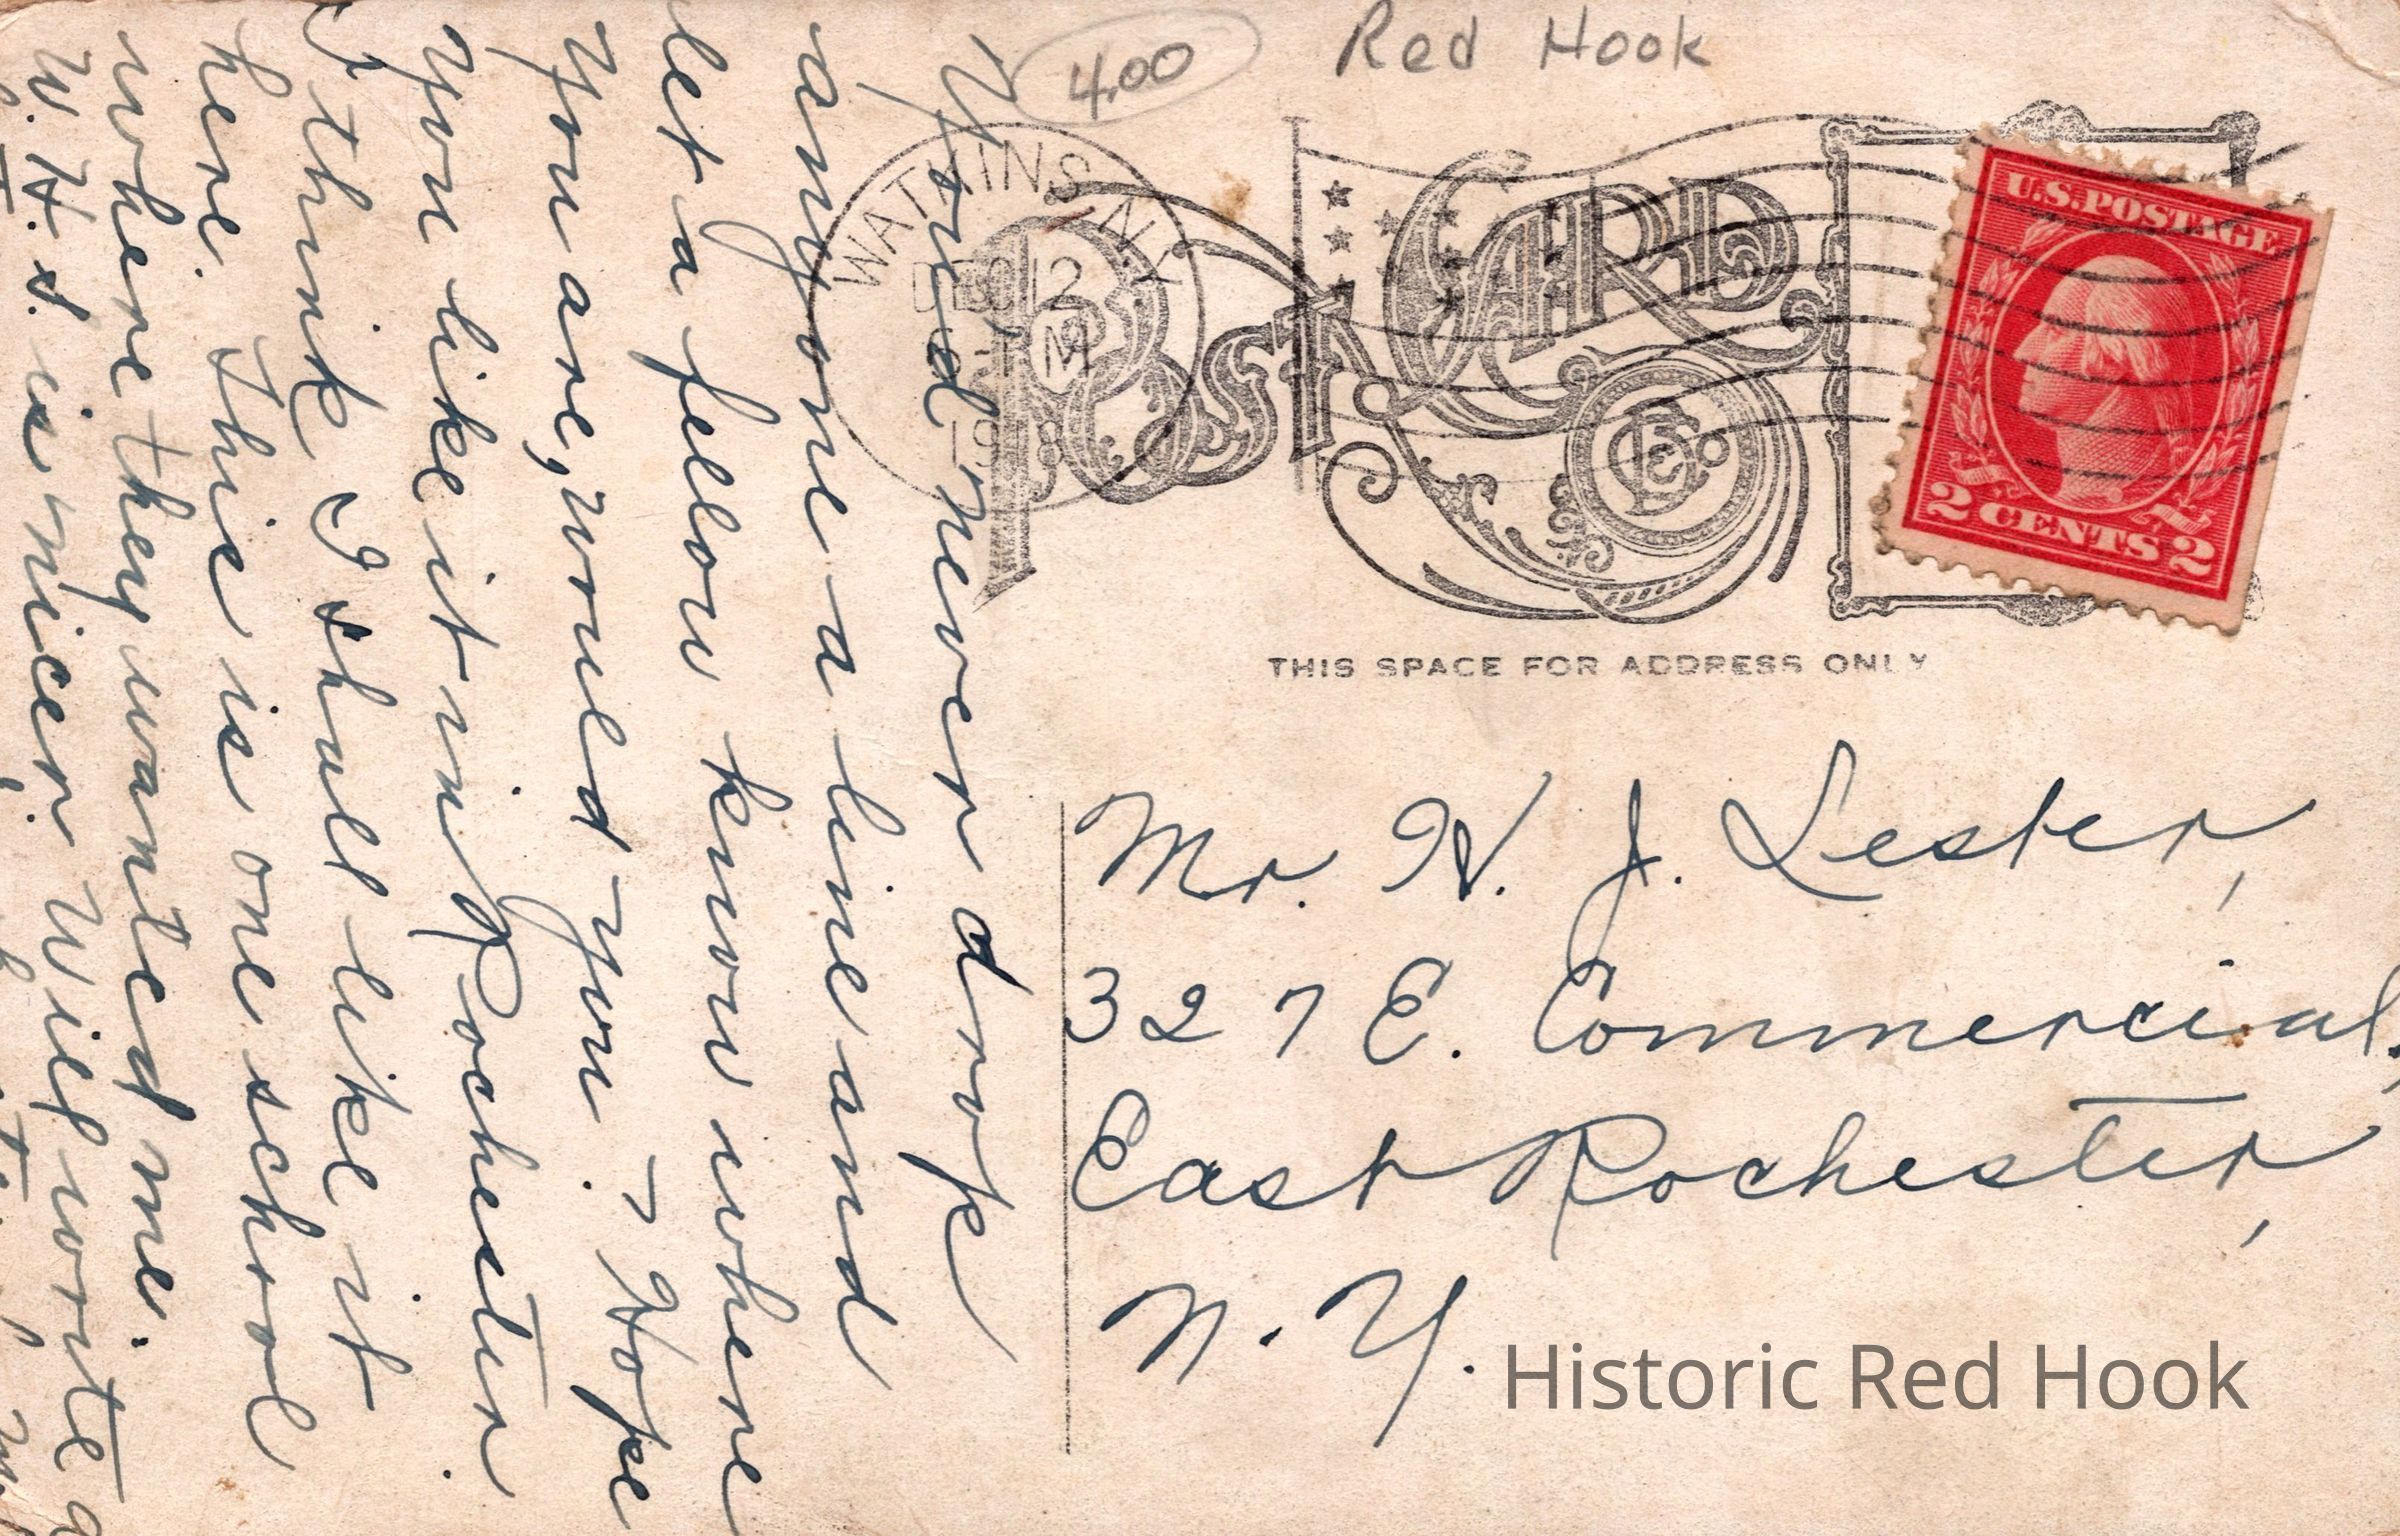 4.00
Red Hook
WATKINS N.Y.
DEC 12
PM
POST CARD
U.S. POSTAGE
2 CENTS 2
THIS SPACE FOR ADDRESS ONLY
Mr. H. J. Lester,
327 E. Commercial,
East Rochester,
N. Y.
Historic Red Hook
You'd never drop
anyone a line and
let a fellow know where
you are, would you. Hope
you like it in Rochester.
I think I shall like it
here. This is one school
where they wanted me.
W.H.S. is nicer. Will write a